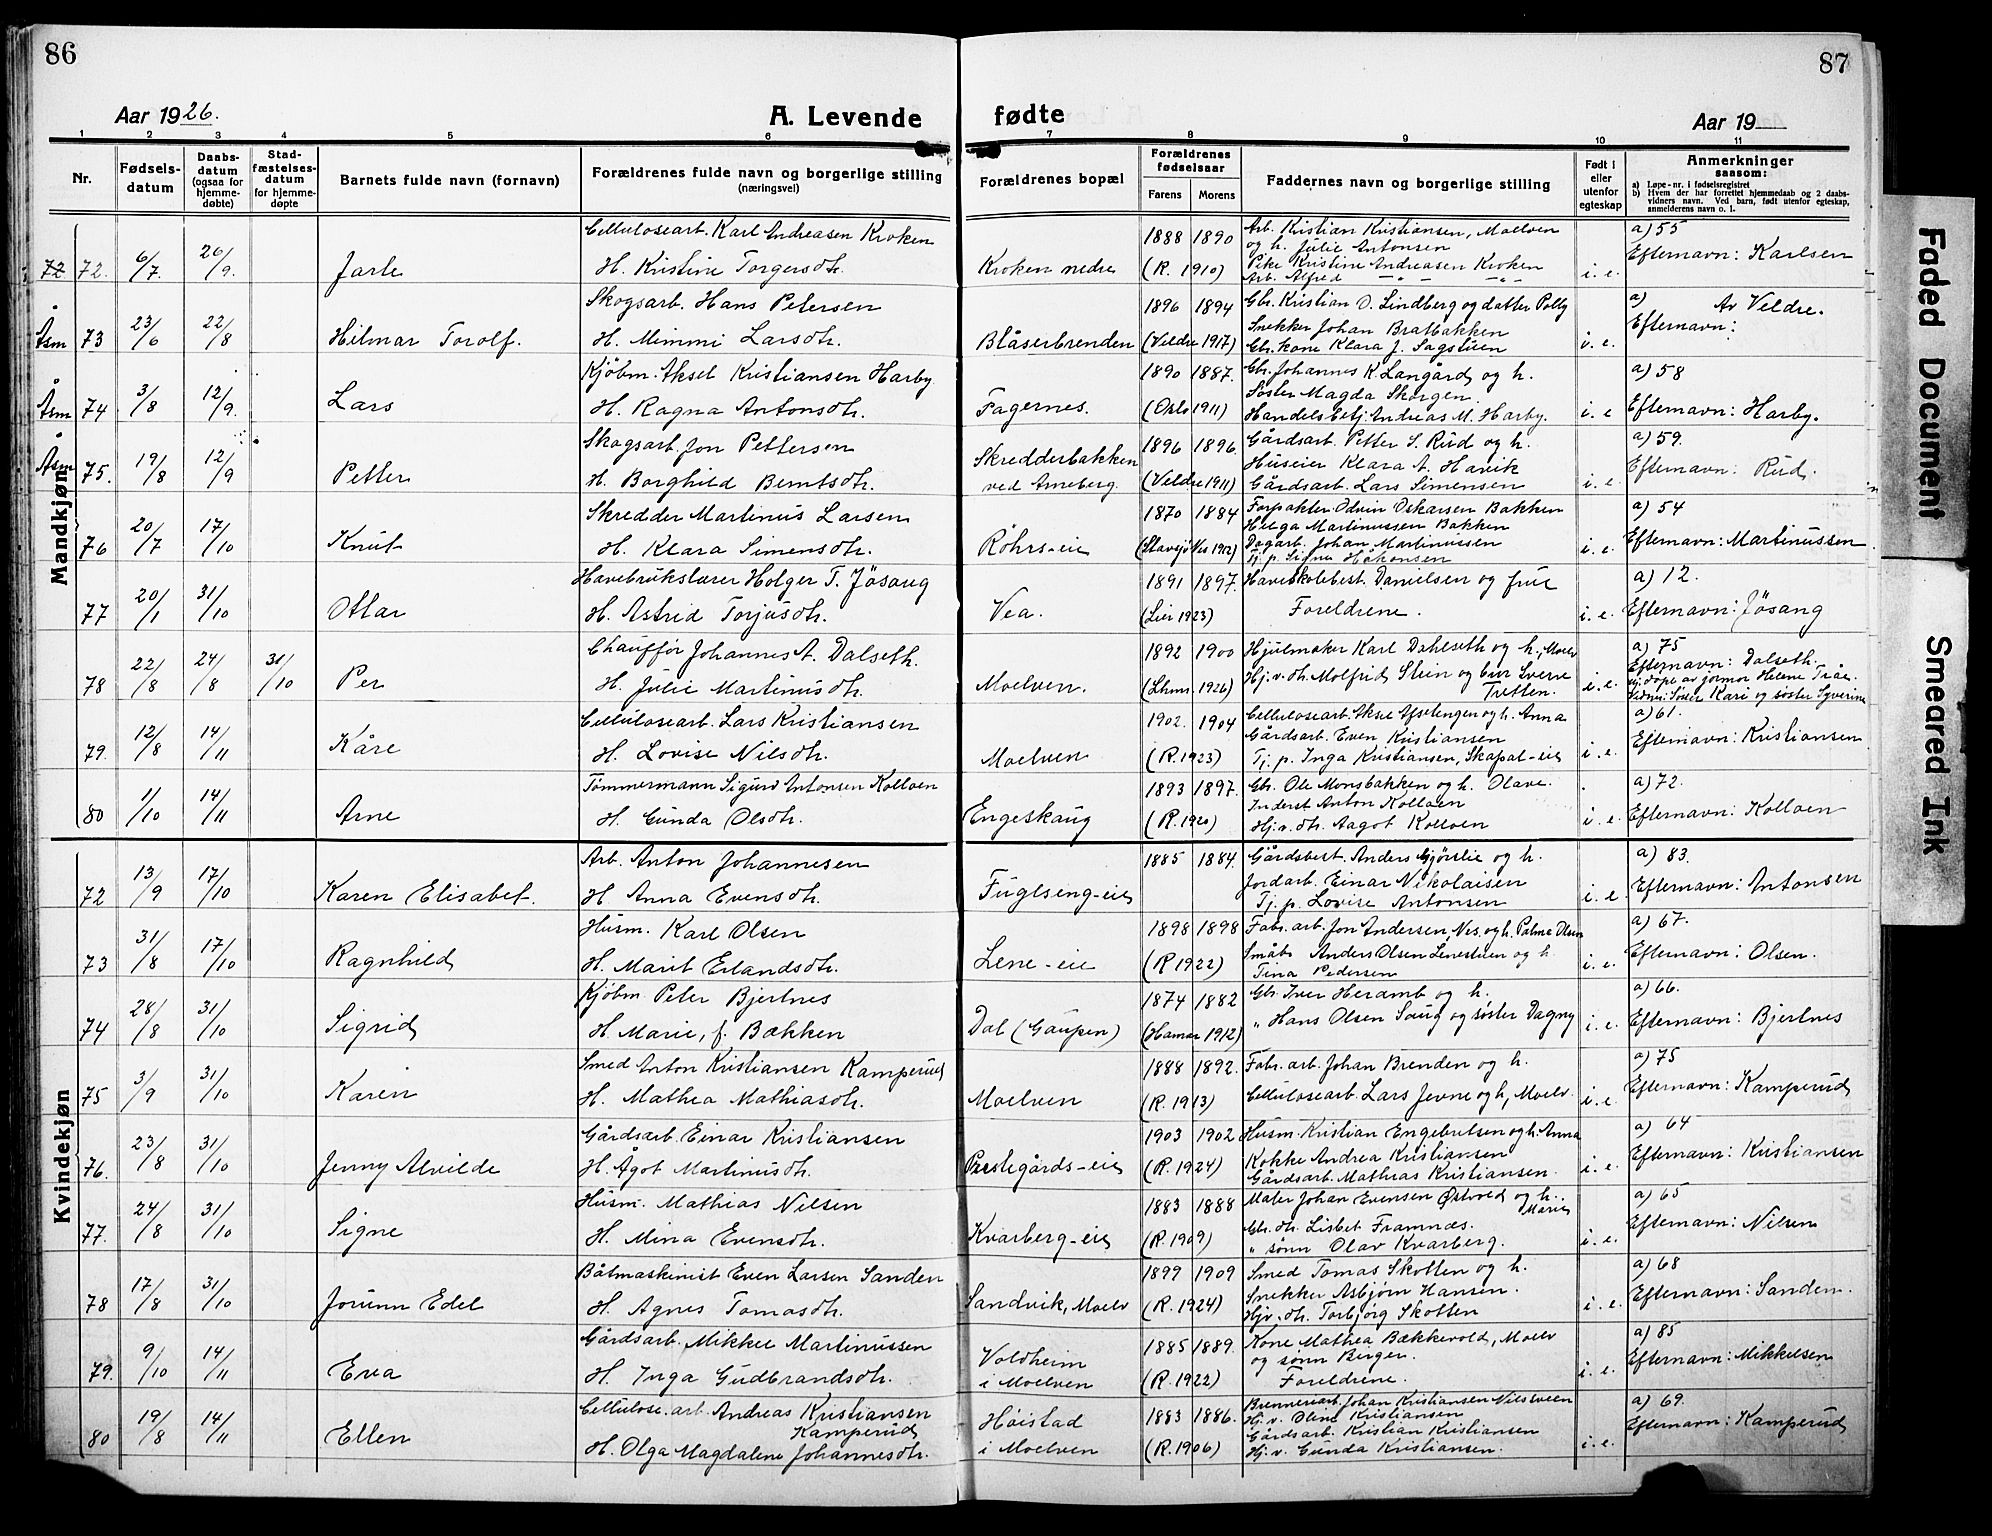 86
87
Aar 1926.
A. Levende fødte
Aar 19
1 2 3 4 5 6 7 8 9 10 11
Nr.
Fødsels-
datum
Daabs-
datum
(ogsaa for
hjemme-
døbte)
Stad-
fæstelses-
datum
for hjemme-
døpte
Barnets fulde navn (fornavn)
Forældrenes fulde navn og borgerlige stilling
(næringsvei)
Forældrenes bopæl
Forældrenes
fødselsaar
Farens Morens
Faddernes navn og borgerlige stilling
Født i
eller
utenfor
egteskap
Anmerkninger
saasom:
a) Løpe-nr. i fødselsregistret
b) Hvem der har forrettet hjemmedaab og 2 daabs-
vidners navn. Ved barn, født utenfor egteskap,
anmelderens navn o. l.
Mandkjøn
72 72. 6/7. 26/9. Jarle
Cellulosearb. Karl Andreasen Kroken
H. Kristine Torgersdtr.
Kroken nedre
1888 1890
(R. 1910)
Arb. Kristian Kristiansen, Moelven
og h. Julie Antonsen
Pike Kristine Andreasen Kroken
Arb. Alfred — „ — — „ —
i. e.
a) 55
Efternavn: Karlsen
Åsm 73 23/6 22/8 Hilmar Torolf.
Skogsarb. Hans Petersen
H. Mimmi Larsdtr.
Blåserbrenden
1896 1894
(Veldre 1917)
Gbr. Kristian O. Lindberg og datter Polly
Snekker Johan Bratbakken
Gbr. kone Klara J. Sagstuen
i. e.
a) Av Veldre.
Efternavn:
Åsm 74 3/8 12/9. Lars
Kjøbm. Aksel Kristiansen Harby
H. Ragna Antonsdtr.
Fagernes.
1890 1887.
(Oslo 1911)
Gbr. Johannes K. Langård og h.
Søster Magda Skorgen.
Handelsbetj. Andreas M. Harby.
i. e
a) 58
Efternavn: Harby.
Åsm 75. 19/8 12/9 Petter
Skogsarb. Jon Pettersen
H. Borghild Berntsdtr.
Skredderbakken
ved Arneberg.
1896 1896.
(Veldre 1911)
Gårdsarb. Petter S. Rud og h.
Huseier Klara A. Havik
Gårdsarb. Lars Simensen
i. e.
a) 59.
Efternavn: Rud.
76 20/7 17/10 Knut
Skredder Martinus Larsen
H. Klara Simensdtr.
Röhrs-eie
1870 1884
Forpakter Odvin Oskarsen Bakken
Helga Martinussen Bakken
Dagarb. Johan Martinussen
Tj. p. Signe Håkonsen
i. e.
a) 54
Efternavn: Martinussen
77 20/1 31/10 Ottar
Havebrukslærer Holger T. Jösang
H. Astrid Torjusdtr.
Vea.
1891 1897.
(Lier 1923)
Haveskolebest. Danielsen og frue
Foreldrene.
i. e.
a) 12.
Efternavn: Jösang
78 22/8 24/8 31/10 Per
Chauffør Johannes A. Dalseth.
H. Julie Martinusdtr.
Moelven.
1892 1900
(Lhmr. 1926)
Hjulmaker Karl Dahlseth og h., Moelv
Hj. v. dtr. Molfrid Stein og bror Sverre
Tretten.
i. e.
a) 75
Efternavn: Dalseth.
Hj. døpt av jormor Helene Tråe.
Vidner: Søster Kari og søster Syverine
79. 12/8 14/11 Kåre
Cellulosearb. Lars Kristiansen
H. Lovise Nilsdtr.
Moelven
1902. 1904
(R. 1923)
Gårdsarb. Even Kristiansen
Tj. p. Inga Kristiansen, Skapal-eie
i. e.
a) 61.
Efternavn: Kristiansen
80 1/10 14/11 Arne
Tømmermann Sigurd Antonsen Kolloen
H. Gunda Olsdtr.
Engeskaug
1893 1897.
(R. 1920)
Gbr. Ole Monsbakken og h. Olave.
Inderst Anton Kolloen
Hj. v. dtr. Aagot Kolloen
i. e.
a) 72.
Efternavn: Kolloen
Kvindekjøn
72 13/9 17/10 Karen Elisabet.
Arb. Anton Johannesen
H Anna Evensdtr.
Fuglseng-eie
1885 1884.
Gårdsbest. Anders Gjørslie og h.
Jordarb. Einar Nikolaisen
Tj. p. Lovise Antonsen
i. e.
a) 83.
Efternavn: Antonsen
73 31/8 17/10 Ragnhild
Husm. Karl Olsen
H. Marit Erlandsdtr.
Lene-eie
1898 1898
(R 1922)
Fabr. arb. Jon Andersen, Nes. og h. Palma Olsen
Småbr. Anders Olsen Lenestuen og h.
Tina Pedersen
i. e.
a) 67.
Efternavn: Olsen.
74 28/8 31/10 Sigrid
Kjøbm. Peter Bjertnes
H. Marie, f. Bækken
Dal (Gaupen)
1874 1882
(Hamar 1912)
Gbr. Iver Heramb og h.
„ Hans Olsen Saug og søster Dagny
i. e.
a) 66.
Efternavn: Bjertnes
75 3/9 31/10 Karen
Smed Anton Kristiansen Kamperud
H. Mathea Mathiasdtr.
Moelven
1888 1892.
(R. 1913)
Fabr. arb. Johan Brenden og h.
Cellulosearb. Lars Jevne og h, Moelv.
i. e.
a) 75
Efternavn: Kamperud
76. 23/8 31/10 Jenny Alvilde
Gårdsarb. Einar Kristiansen
H. Ågot Martinusdtr.
Prestegårds-eie
1903 1902
(R. 1924)
Husm. Kristian Engebretsen og h. Anna
Kokke Andrea Kristiansen
Gårdsarb. Mathias Kristiansen.
i. e.
a) 64
Efternavn: Kristiansen
77. 24/8 31/10 Signe
Husm. Mathias Nilsen
H. Mina Evensdtr.
Kvarberg-eie
1883 1888
(R. 1909)
Maler Johan Evensen Østvold og h.
Marie
Gbr. dtr. Lisbet Framnæs.
„ sønn Olav Kvarberg.
i. e.
a) 65
Efternavn: Nilsen
78 17/8 31/10 Jorunn Edel
Båtmaskinist Even Larsen Sanden
H. Agnes Tomasdtr.
Sandvik, Moelv
1899 1909
(R. 1924)
Smed Tomas Skotten og h.
Snekker Asbjørn Hansen.
Hj. v. dtr. Torbjørg Skotten
i. e.
a) 68
Efternavn: Sanden.
79. 9/10 14/11 Eva
Gårdsarb. Mikkel Martinussen
H. Inga Gudbrandsdtr.
Voldheim
i Moelven
1885 1889.
(R. 1922)
Kone Mathea Bækkevold, Moelv
og sønn Birger.
Foreldrene.
i. e.
a) 85
Efternavn: Mikkelsen
80 19/8 14/11 Ellen
Cellulose. arb. Andreas Kristiansen
Kamperud
H. Olga Magdalene Johannesdtr.
Høistad
i Moelven
1883 1886.
(R. 1906)
Brenneriarb. Johan Kristiansen Nilsveen
Hj. v. Oline Kristiansen
Gårdsarb. Kristian Kristiansen
Hj. v. Gunda Kristiansen.
i. e.
a) 69.
Efternavn: Kamperud
Faded Document
Smeared Ink